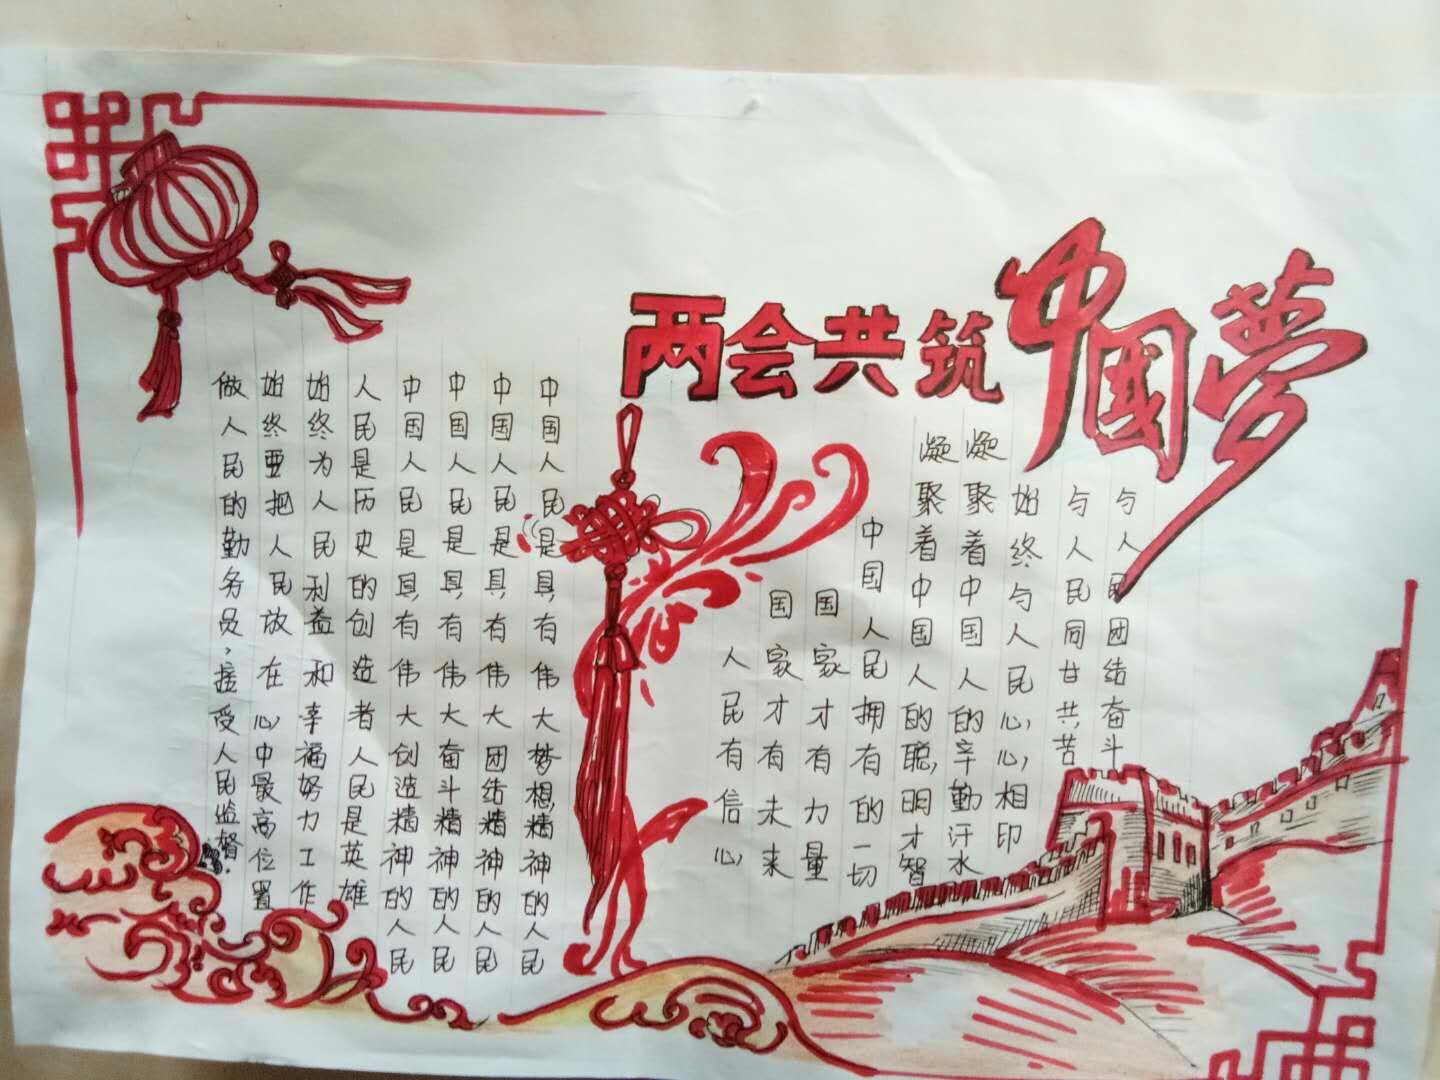 两会共筑中国梦
与人民团结奋斗
与人民同甘共苦
始终与人民心心相印
凝聚着中国人的辛勤汗水
凝聚着中国人的聪明才智
中国人民拥有的一切
国家才有力量
国家才有未来
人民有信心
中国人民是具有伟大梦想精神的人民
中国人民是具有伟大团结精神的人民
中国人民是具有伟大奋斗精神的人民
中国人民是具有伟大创造精神的人民
人民是历史的创造者人民是英雄
始终为人民利益和幸福努力工作
始终要把人民放在心中最高位置
做人民的勤务员，接受人民监督.